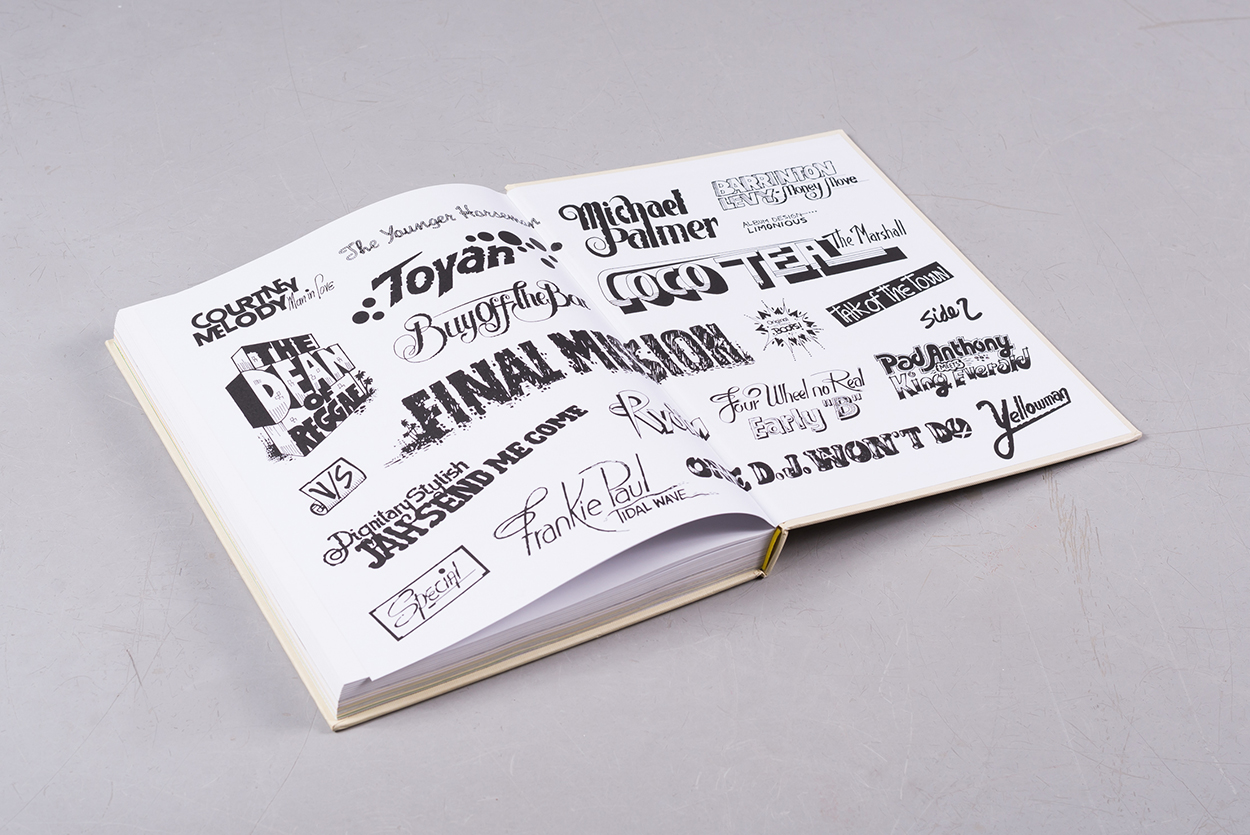 The Younger Horseman
COURTNEY
MELODY
Man in Love
Toyan
Buy off the Bar
THE
DEAN
OF
REGGAE
FINAL MISSION
V/S
Dignitary Stylish
JAH SEND ME COME
Frankie Paul
TIDAL WAVE
Special
Michael
Palmer
BARRINTON
LEVY-Money Move
ALBUM DESIGN.....
LIMONIOUS
COCO TEA
The Marshall
Original
TALK OF THE TOWN
Side 2
Pad Anthony
King Everald
Four Wheel no Real
Early "B"
ONE D.J. WON'T DO
Yellowman